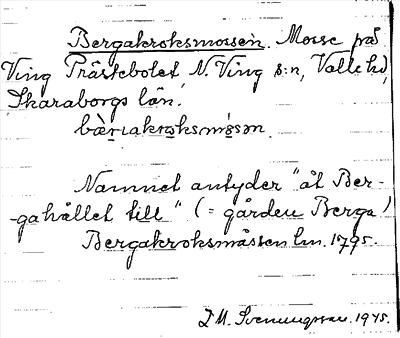 Bergakroksmossen. Mosse på
Ving Prästebolet N. Ving s:n, Valle hd,
Skaraborgs län.
bàrıakroksmòsən
Namnet antyder "åt Ber-
-gahållet till" (= gården Berga)
Bergakroksmåssen lm. 1795.
Svenungsson 1945.